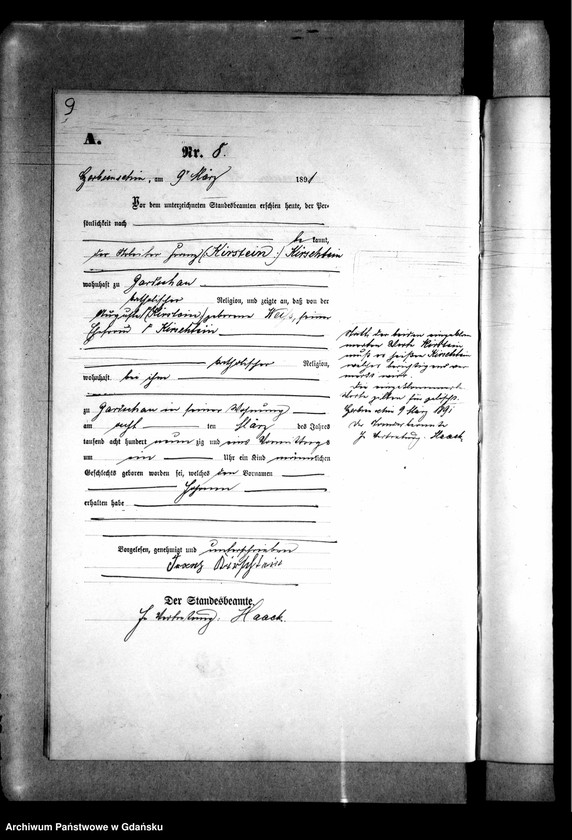 9
A.
Nr. 8.
am 9 März 1891
Vor dem unterzeichneten Standesbeamten erschien heute, der Per-
sönlichkeit nach
be kannt,
der Arbeiter Franz (Kirstein :) Kirschtein
wohnhaft zu Gartschau
katholischer Religion, und zeigte an, daß von der
Auguste (Kirstein) geborene Weiß, seiner
Ehefrau Kirschtein
katholischer Religion,
wohnhaft bei ihm
zu Gartschau in seiner Wohnung
am acht ten März des Jahres
tausend acht hundert neun zig und eins Vormittags
um ein Uhr ein Kind männlichen
Geschlechts geboren worden sei, welches den Vornamen
Johann
erhalten habe
Vorgelesen, genehmigt und unterschrieben
Franz Kirschtein
Der Standesbeamte.
In Vertretung. Haack.
Statt der beiden eingeklam-
merten Worte Kirstein
muß es heißen Kirschtein
welches berichtigend ver-
merkt wird.
Die eingeklammerten
Worte gelten für gelöscht.
9 März 1891
Der Standesbeamte
In Vertretung. Haack
Archiwum Państwowe w Gdańsku